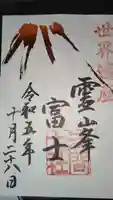 世界遺産
霊峯
富士
令和五年
十月二十八日